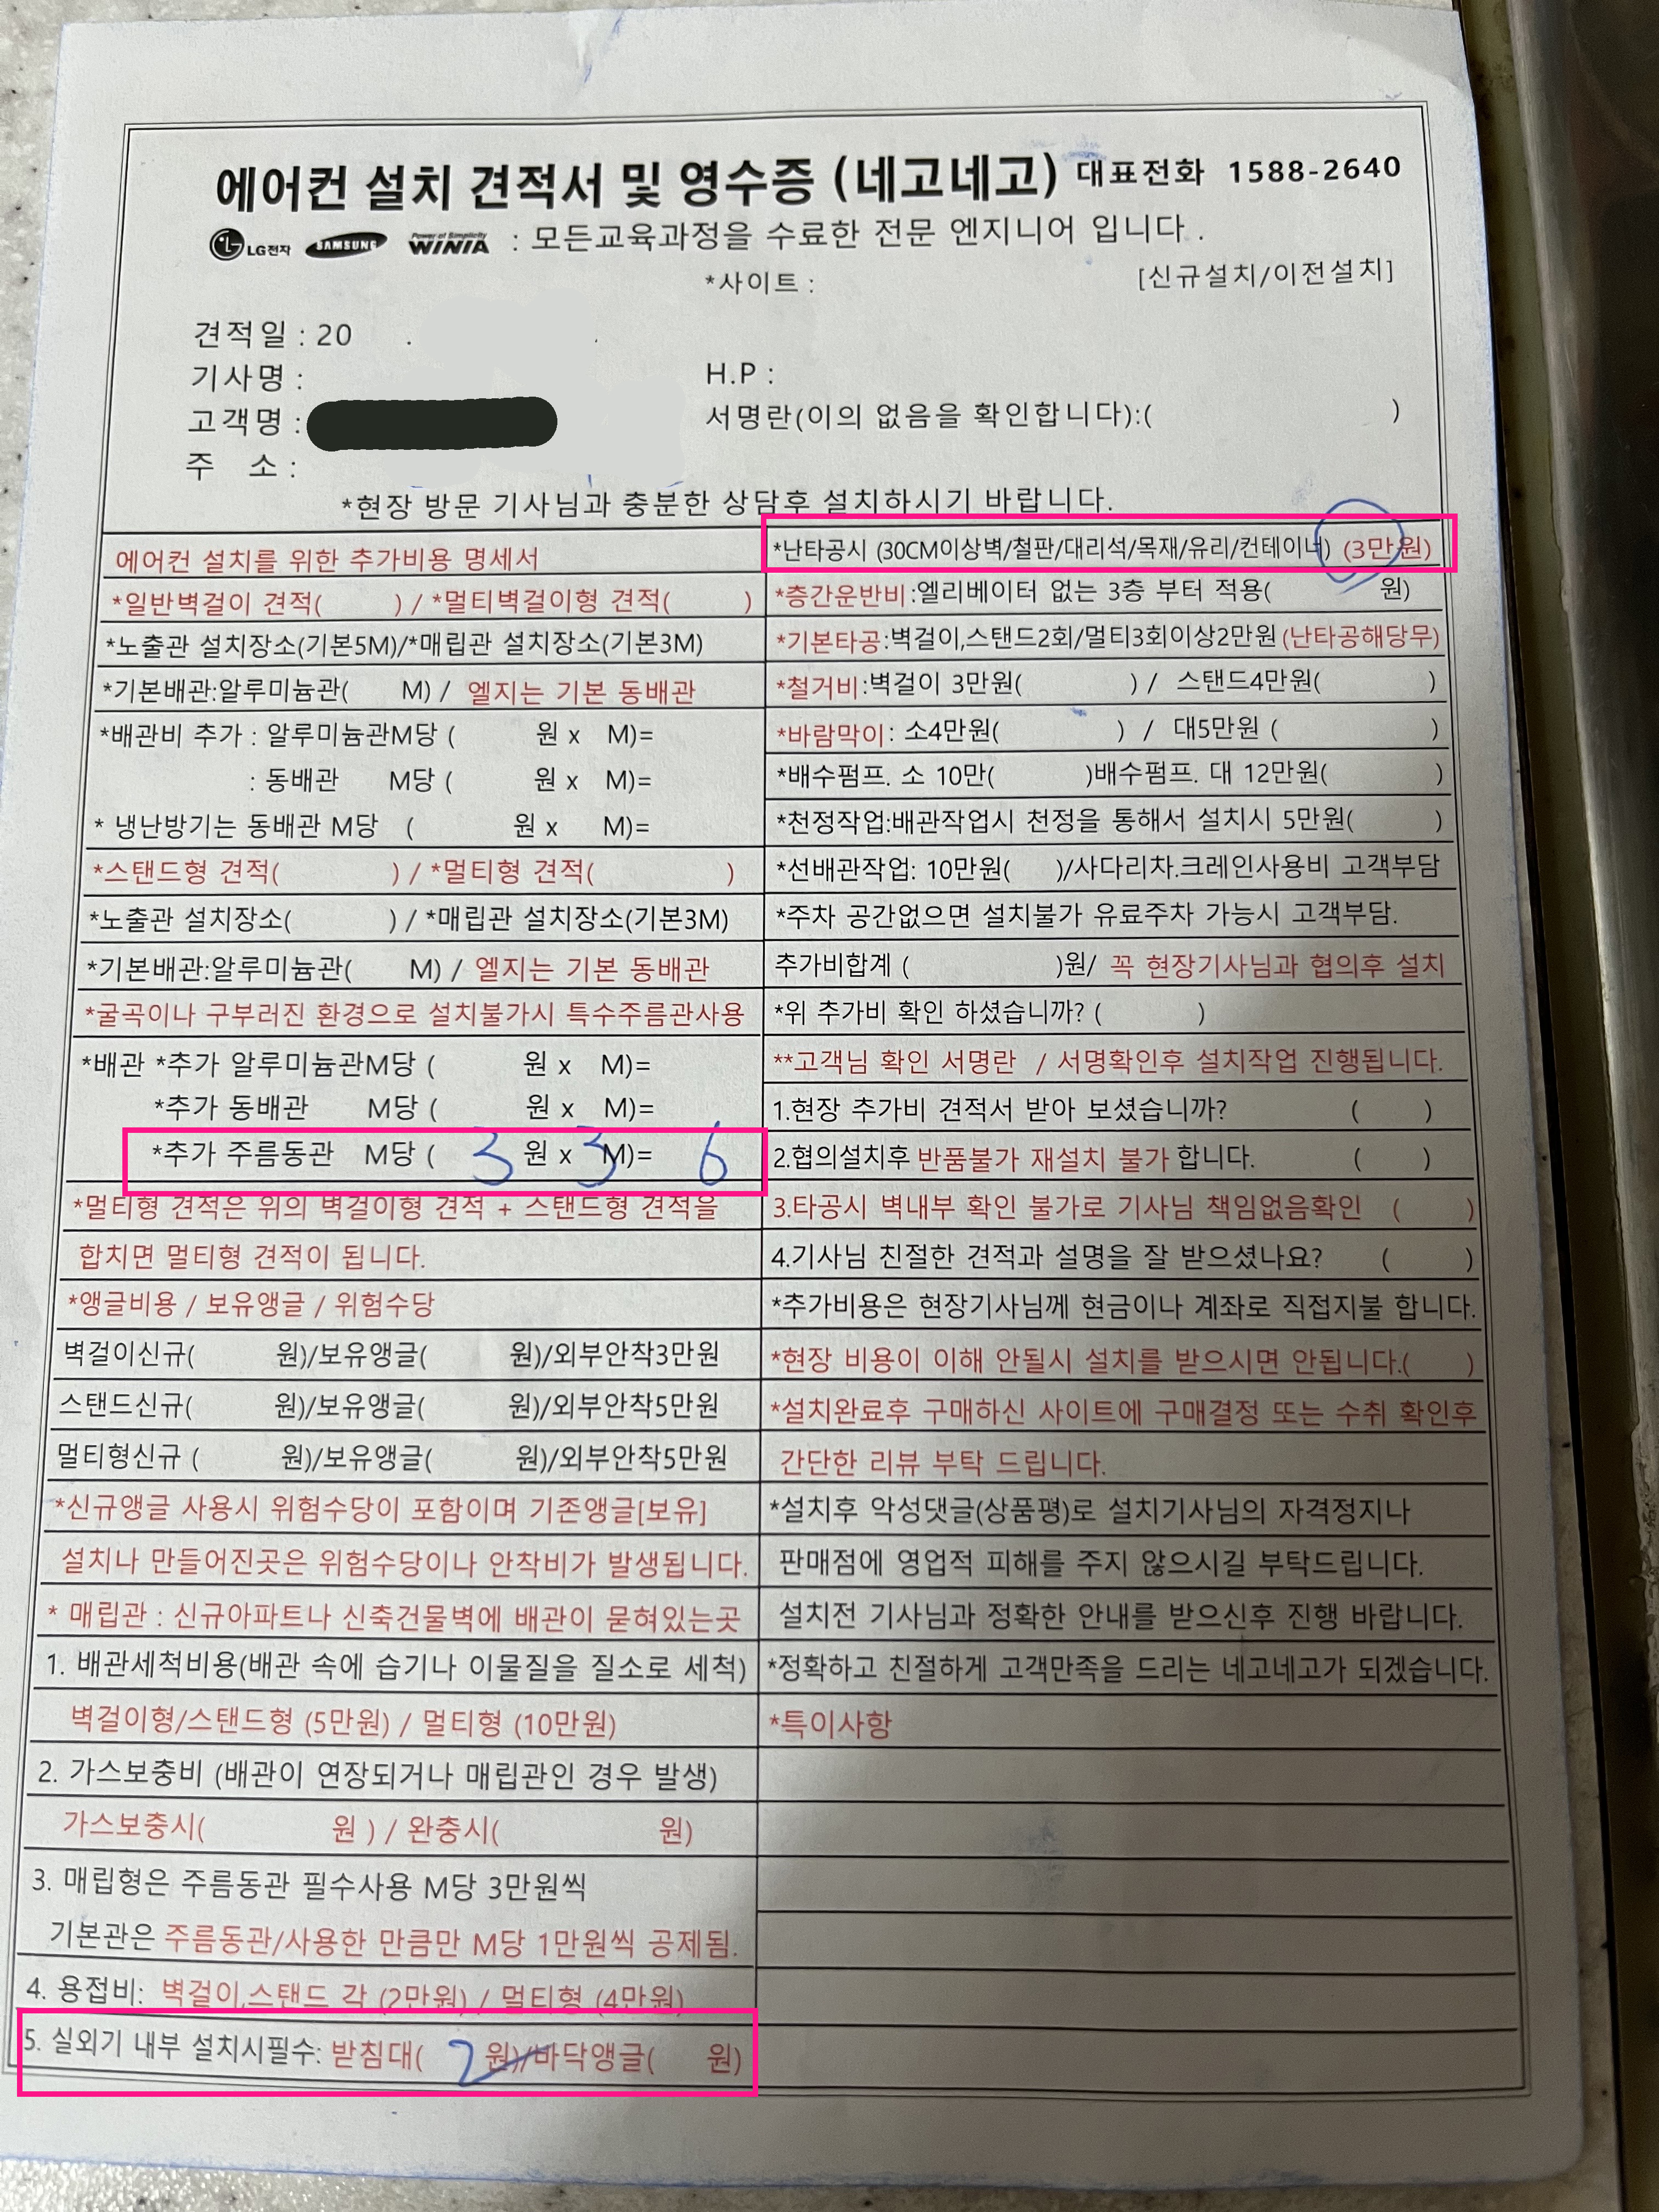 에어컨 설치 견적서 및 영수증 (네고네고) 대표전화 1588-2640
LG전자 SAMSUNG Power of Simplicity WINIA : 모든교육과정을 수료한 전문 엔지니어 입니다 .
*사이트 : [신규설치/이전설치]
견적일 : 20 . .
기사명 : H.P :
고객명 : 서명란(이의 없음을 확인합니다):( )
주 소 :
*현장 방문 기사님과 충분한 상담후 설치하시기 바랍니다.
에어컨 설치를 위한 추가비용 명세서
*일반벽걸이 견적( ) / *멀티벽걸이형 견적( )
*노출관 설치장소(기본5M)/*매립관 설치장소(기본3M)
*기본배관:알루미늄관( M) / 엘지는 기본 동배관
*배관비 추가 : 알루미늄관M당 ( 원 x M)=
: 동배관 M당 ( 원 x M)=
* 냉난방기는 동배관 M당 ( 원 x M)=
*스탠드형 견적( ) / *멀티형 견적( )
*노출관 설치장소( ) / *매립관 설치장소(기본3M)
*기본배관:알루미늄관( M) / 엘지는 기본 동배관
*굴곡이나 구부러진 환경으로 설치불가시 특수주름관사용
*배관 *추가 알루미늄관M당 ( 원 x M)=
*추가 동배관 M당 ( 원 x M)=
*추가 주름동관 M당 ( 3 원 x 3 M)= 6
*멀티형 견적은 위의 벽걸이형 견적 + 스탠드형 견적을
합치면 멀티형 견적이 됩니다.
*앵글비용 / 보유앵글 / 위험수당
벽걸이신규( 원)/보유앵글( 원)/외부안착3만원
스탠드신규( 원)/보유앵글( 원)/외부안착5만원
멀티형신규 ( 원)/보유앵글( 원)/외부안착5만원
*신규앵글 사용시 위험수당이 포함이며 기존앵글[보유]
설치나 만들어진곳은 위험수당이나 안착비가 발생됩니다.
* 매립관 : 신규아파트나 신축건물벽에 배관이 묻혀있는곳
1. 배관세척비용(배관 속에 습기나 이물질을 질소로 세척)
벽걸이형/스탠드형 (5만원) / 멀티형 (10만원)
2. 가스보충비 (배관이 연장되거나 매립관인 경우 발생)
가스보충시( 원 ) / 완충시( 원)
3. 매립형은 주름동관 필수사용 M당 3만원씩
기본관은 주름동관/사용한 만큼만 M당 1만원씩 공제됨.
4. 용접비: 벽걸이,스탠드 각 (2만원) / 멀티형 (4만원)
5. 실외기 내부 설치시필수: 받침대( 2 원)/바닥앵글( 원)
*난타공시 (30CM이상벽/철판/대리석/목재/유리/컨테이너) (3만원)
*층간운반비:엘리베이터 없는 3층 부터 적용( 원)
*기본타공:벽걸이,스탠드2회/멀티3회이상2만원(난타공해당무)
*철거비:벽걸이 3만원( ) / 스탠드4만원( )
*바람막이: 소4만원( ) / 대5만원 ( )
*배수펌프. 소 10만( )배수펌프. 대 12만원( )
*천정작업:배관작업시 천정을 통해서 설치시 5만원( )
*선배관작업: 10만원( )/사다리차.크레인사용비 고객부담
*주차 공간없으면 설치불가 유료주차 가능시 고객부담.
추가비합계 ( )원/ 꼭 현장기사님과 협의후 설치
*위 추가비 확인 하셨습니까? ( )
**고객님 확인 서명란 / 서명확인후 설치작업 진행됩니다.
1.현장 추가비 견적서 받아 보셨습니까? ( )
2.협의설치후 반품불가 재설치 불가 합니다. ( )
3.타공시 벽내부 확인 불가로 기사님 책임없음확인 ( )
4.기사님 친절한 견적과 설명을 잘 받으셨나요? ( )
*추가비용은 현장기사님께 현금이나 계좌로 직접지불 합니다.
*현장 비용이 이해 안될시 설치를 받으시면 안됩니다.( )
*설치완료후 구매하신 사이트에 구매결정 또는 수취 확인후
간단한 리뷰 부탁 드립니다.
*설치후 악성댓글(상품평)로 설치기사님의 자격정지나
판매점에 영업적 피해를 주지 않으시길 부탁드립니다.
설치전 기사님과 정확한 안내를 받으신후 진행 바랍니다.
*정확하고 친절하게 고객만족을 드리는 네고네고가 되겠습니다.
*특이사항